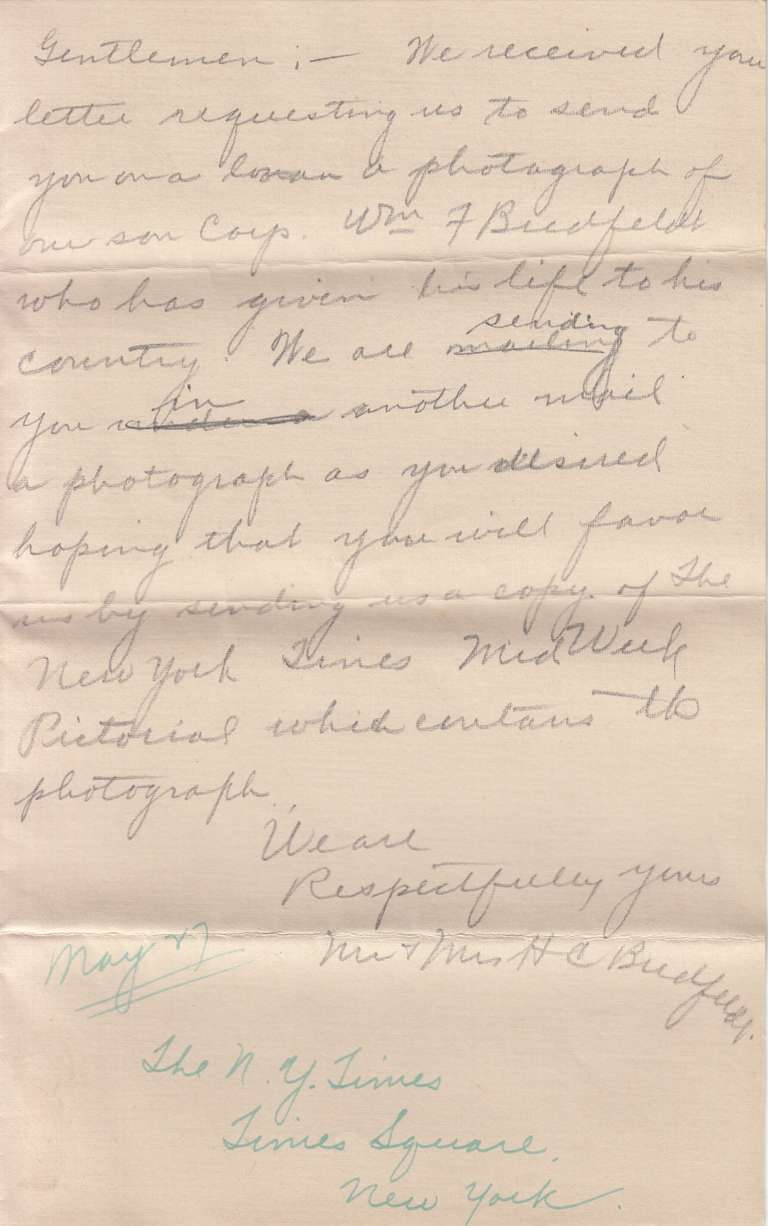 Gentlemen:— We received your
letter requesting us to send
you on a loan a photagraph of
our son Corp. Wm F Buedfeldt
who has given his life to his
country. We are mailing sending to
you in another mail
a photograph as you desired
hoping that you will favor
us by sending us a copy of The
New York Times Mid Week
Pictorial which contans the
photograph.
We are
Respectfully yours
Mr & Mrs H C Buedfeldt.
May 27
The N. Y. Times
Times Square.
New York.